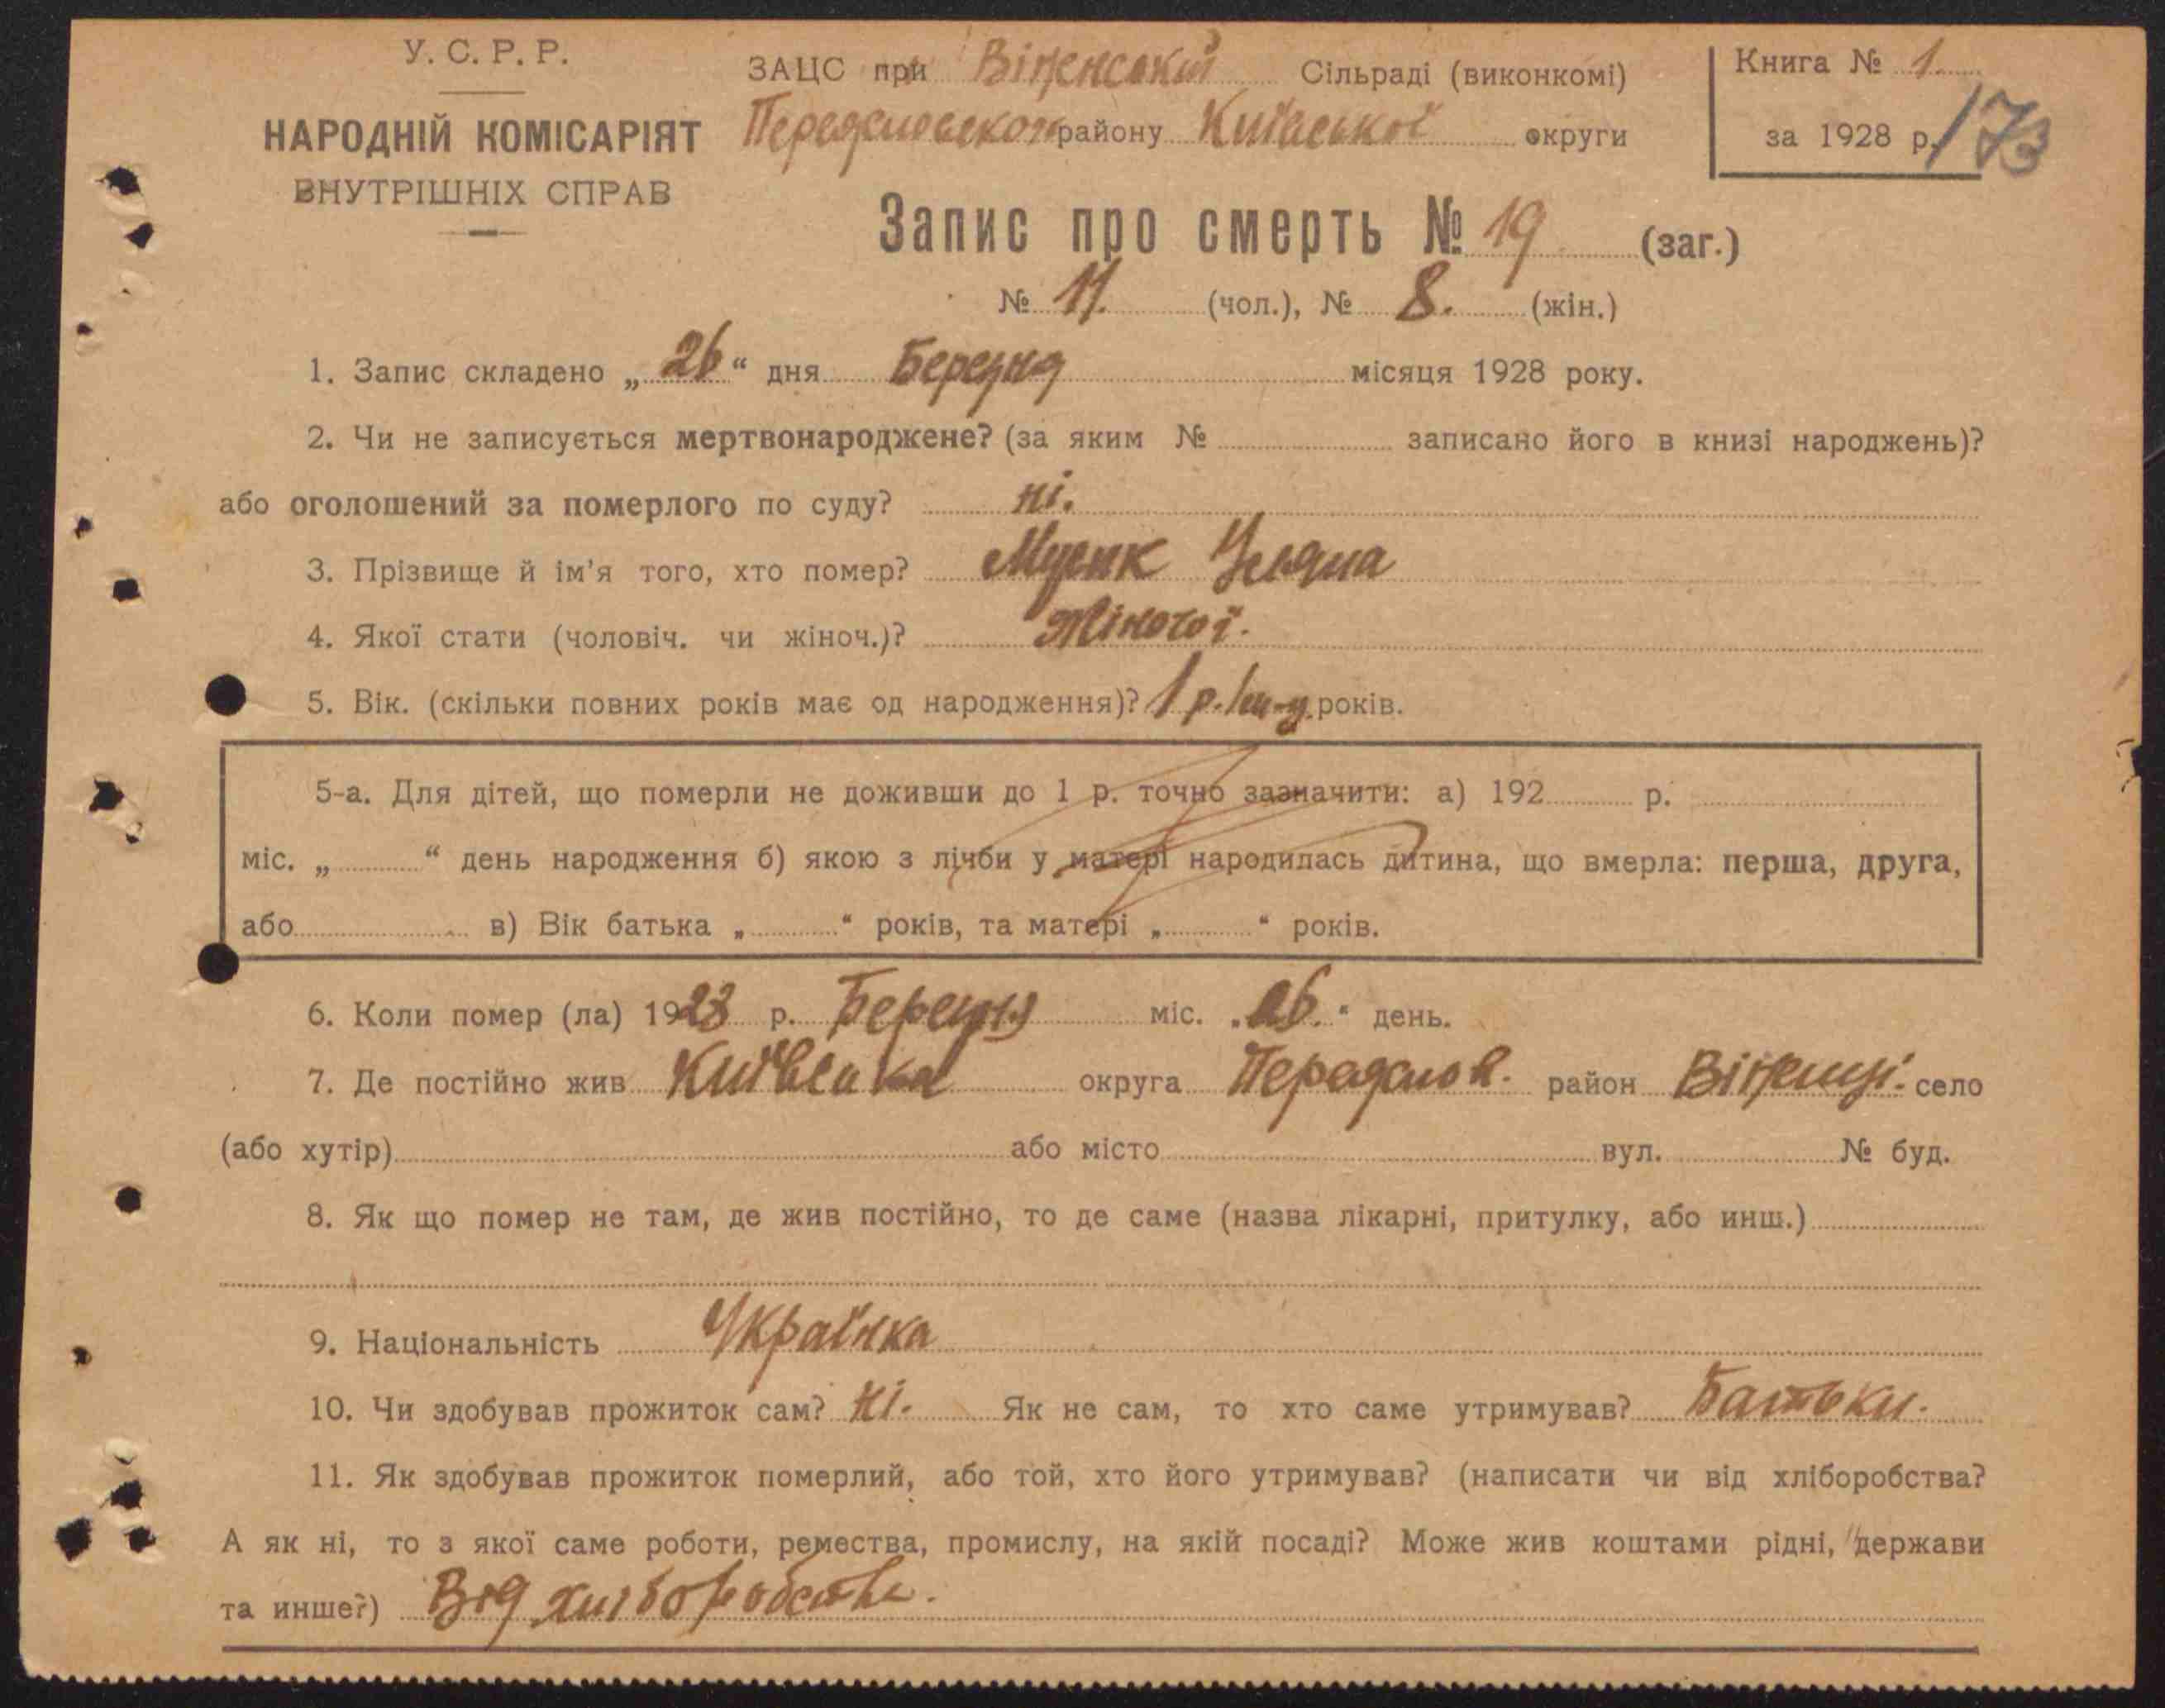 У. С. Р. Р.
НАРОДНІЙ КОМІСАРІЯТ
ВНУТРІШНІХ СПРАВ
ЗАЦС при Віненській Сільраді (виконкомі)
району Київської округи
Книга № 1.
за 1928 р. 173
Запис про смерть № 19 (заг.)
№ 11. (чол.), № 8. (жін.)
1. Запис складено „ 26 “ дня Березня місяця 1928 року.
2. Чи не записується мертвонароджене? (за яким № записано його в книзі народжень)?
або оголошений за померлого по суду? ні.
3. Прізвище й ім'я того, хто помер? Уляна
4. Якої стати (чоловіч. чи жіноч.)? Жіночої.
5. Вік. (скільки повних років має од народження)? 1 р. років.
5-а. Для дітей, що померли не доживши до 1 р. точно зазначити: а) 192 р.
міс. „ “ день народження б) якою з лічби у матері народилась дитина, що вмерла: перша, друга,
або в) Вік батька „ “ років, та матері „ “ років.
6. Коли помер (ла) 1928 р. Березня міс. „ 26. “ день.
7. Де постійно жив Київська округа район село
(або хутір) або місто вул. № буд.
8. Як що помер не там, де жив постійно, то де саме (назва лікарні, притулку, або инш.)
9. Національність Українка
10. Чи здобував прожиток сам? Ні. Як не сам, то хто саме утримував? Батьки.
11. Як здобував прожиток померлий, або той, хто його утримував? (написати чи від хліборобства?
А як ні, то з якої саме роботи, ремества, промислу, на якій посаді? Може жив коштами рідні, держави
та инше?) Від хліборобства.